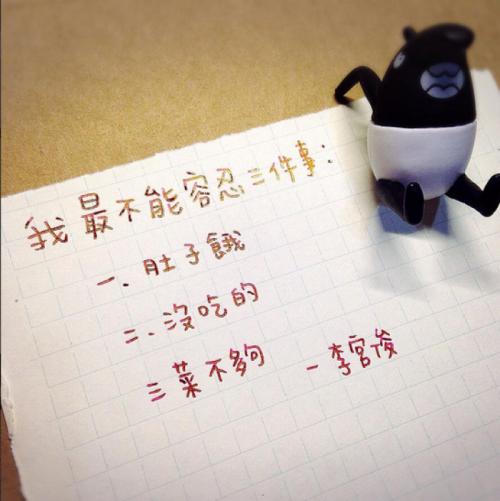 我最不能容忍三件事:
一.肚子餓
二.沒吃的
三菜不夠
-李宮俊